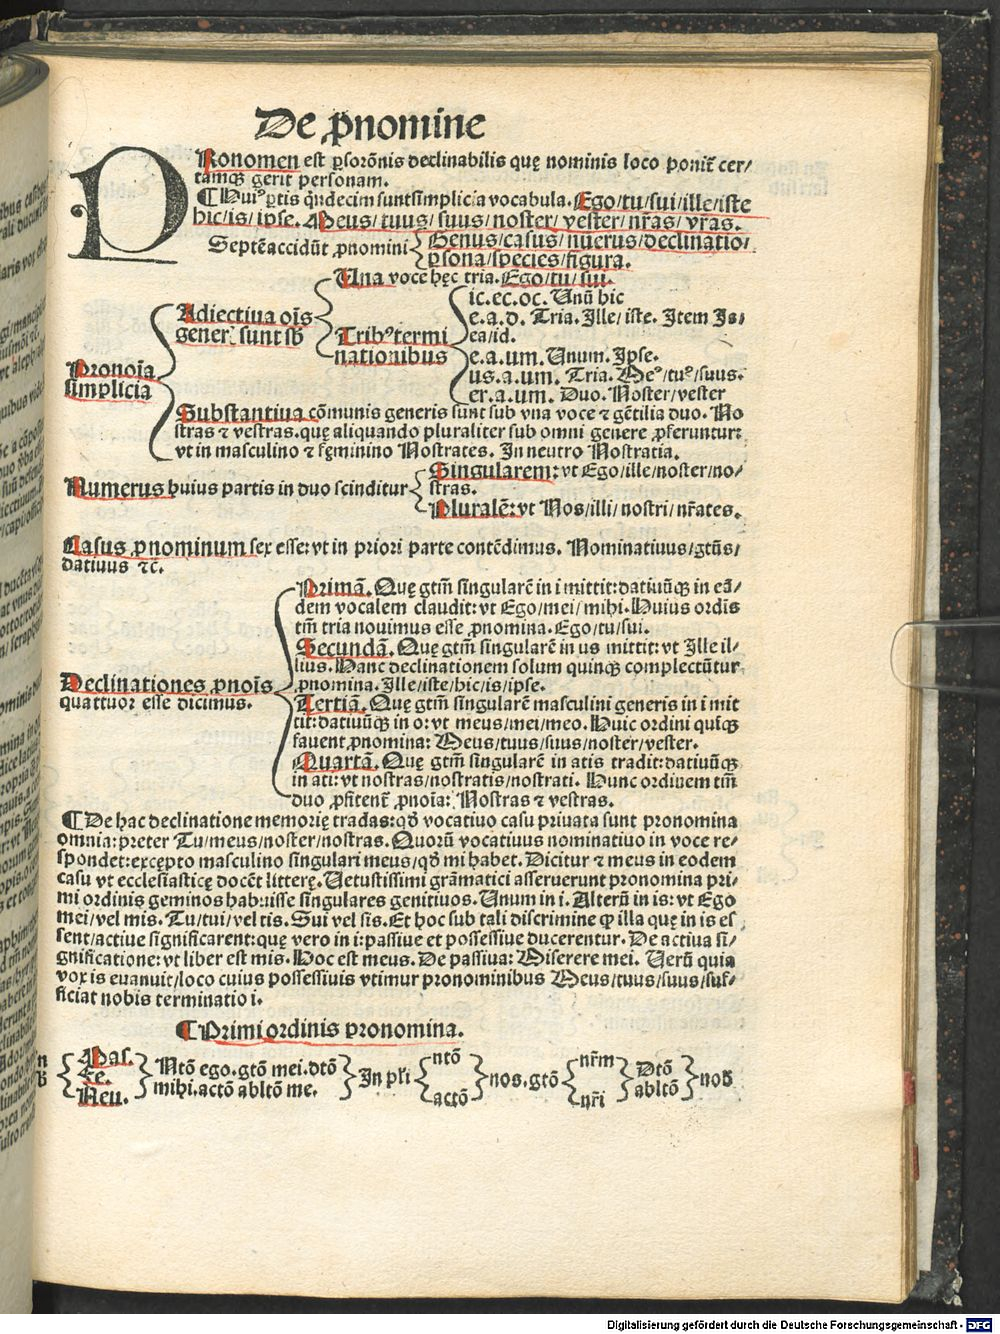 De ꝓnomine
PRonomen est ꝑsorōnis declinabilis quę nominis loco ponit̄ cer/
tamqꝫ gerit personam.
¶ Huiꝰ ꝑtis q̄ndecim sunt simplicia vocabula. Ego/tu/sui/ille/iste
hic/is/ipse. Meus/tuus/suus/noster/vester/nr̄as/vr̄as.
Septē accidūt ꝓnomini
Genus/casus/nūerus/declinatio/
ꝑsona/species/figura.
Pronoīa
simplicia
Adiectiua oīs
gener̄ sunt sb̄
Una voce hęc tria. Ego/tu/sui.
Tribꝰ termi
nationibus
ic.ec.oc. Unū hic
e.a.d. Tria. Ille/iste. Item Is/
ea/id.
e.a.um. Unum. Ipse.
us.a.um. Tria. Meꝰ/tuꝰ/suus.
er.a.um. Duo. Noster/vester
Substantiua cōmunis generis sunt sub vna voce ⁊ gētilia duo. No
stras ⁊ vestras. que aliquando pluraliter sub omni genere ꝓferuntur:
vt in masculino ⁊ fęminino Nostrates. In neutro Nostratia.
Numerus huius partis in duo scinditur
Singularem: vt Ego/ille/noster/no/
stras.
Pluralē: vt Nos/illi/nostri/nr̄ates.
Casus ꝓnominum sex esse: vt in priori parte contēdimus. Nominatiuus/gtūs/
datiuus ⁊c̄.
Declinationes ꝓnoīs
quattuor esse dicimus.
Primā. Quę gtm̄ singularē in i mittit: datiuūqꝫ in eā/
dem vocalem claudit: vt Ego/mei/mihi. Huius ordīs
tm̄ tria nouimus esse ꝓnomina. Ego/tu/sui.
Secundā. Quę gtm̄ singularem in us mittit: vt Ille il-
lius. Hanc declinationem solum quinqꝫ complectūtur
ꝓnomina. Ille/iste/hic/is/ipse.
Tertiā. Quę gtm̄ singularē masculini generis in i mit
tit: datiuūqꝫ in o: vt meus/mei/meo. Huic ordini quīqꝫ
fauent ꝓnomina: Meus/tuus/suus/noster/vester.
Quartā. Quę gtm̄ singularē in atis tradit: datiuūqꝫ
in ati: vt nostras/nostratis/nostrati. Hunc ordinem tm̄
duo ꝓfitent̄ ꝓnoīa: Nostras ⁊ vestras.
¶ De hac declinatione memorię tradas: qd̄ vocatiuo casu priuata sunt pronomina
omnia: preter Tu/meus/noster/nostras. Quorū vocatiuus nominatiuo in voce re-
spondet: excępto masculino singulari meus/qd̄ mi habet. Dicitur ⁊ meus in eodem
casu vt ecclesiasticę docēt litterę. Vetustissimi grāmatici asseruerunt pronomina pri-
mi ordinis geminos habuisse singulares genitiuos. Unum in i. Alterū in is: vt Ego
mei/vel mis. Tu/tui/vel tis. Sui vel sis. Et hoc sub tali discrimine ꝙ illa quę in is es
sent/actiue significarent: quę vero in i: passiue et possessiue ducerentur. De actiua si-
gnificatione: vt liber est mis. Hoc est meus. De passiua: Miserere mei. Verū quia
vox is euanuit/loco cuius possessiuis vtimur pronominibus Meus/tuus/suus/suf-
ficiat nobis terminatio i.
¶ Primi ordinis pronomina.
Mas.
Fe.
Neu.
Ntō ego. gtō mei. dtō
mihi. actō abltō me.
In pľi
ntō
actō
nos. gtō
nr̄m
nr̄i
Dtō
abltō
nob̄
Digitalisierung gefördert durch die Deutsche Forschungsgemeinschaft - DFG